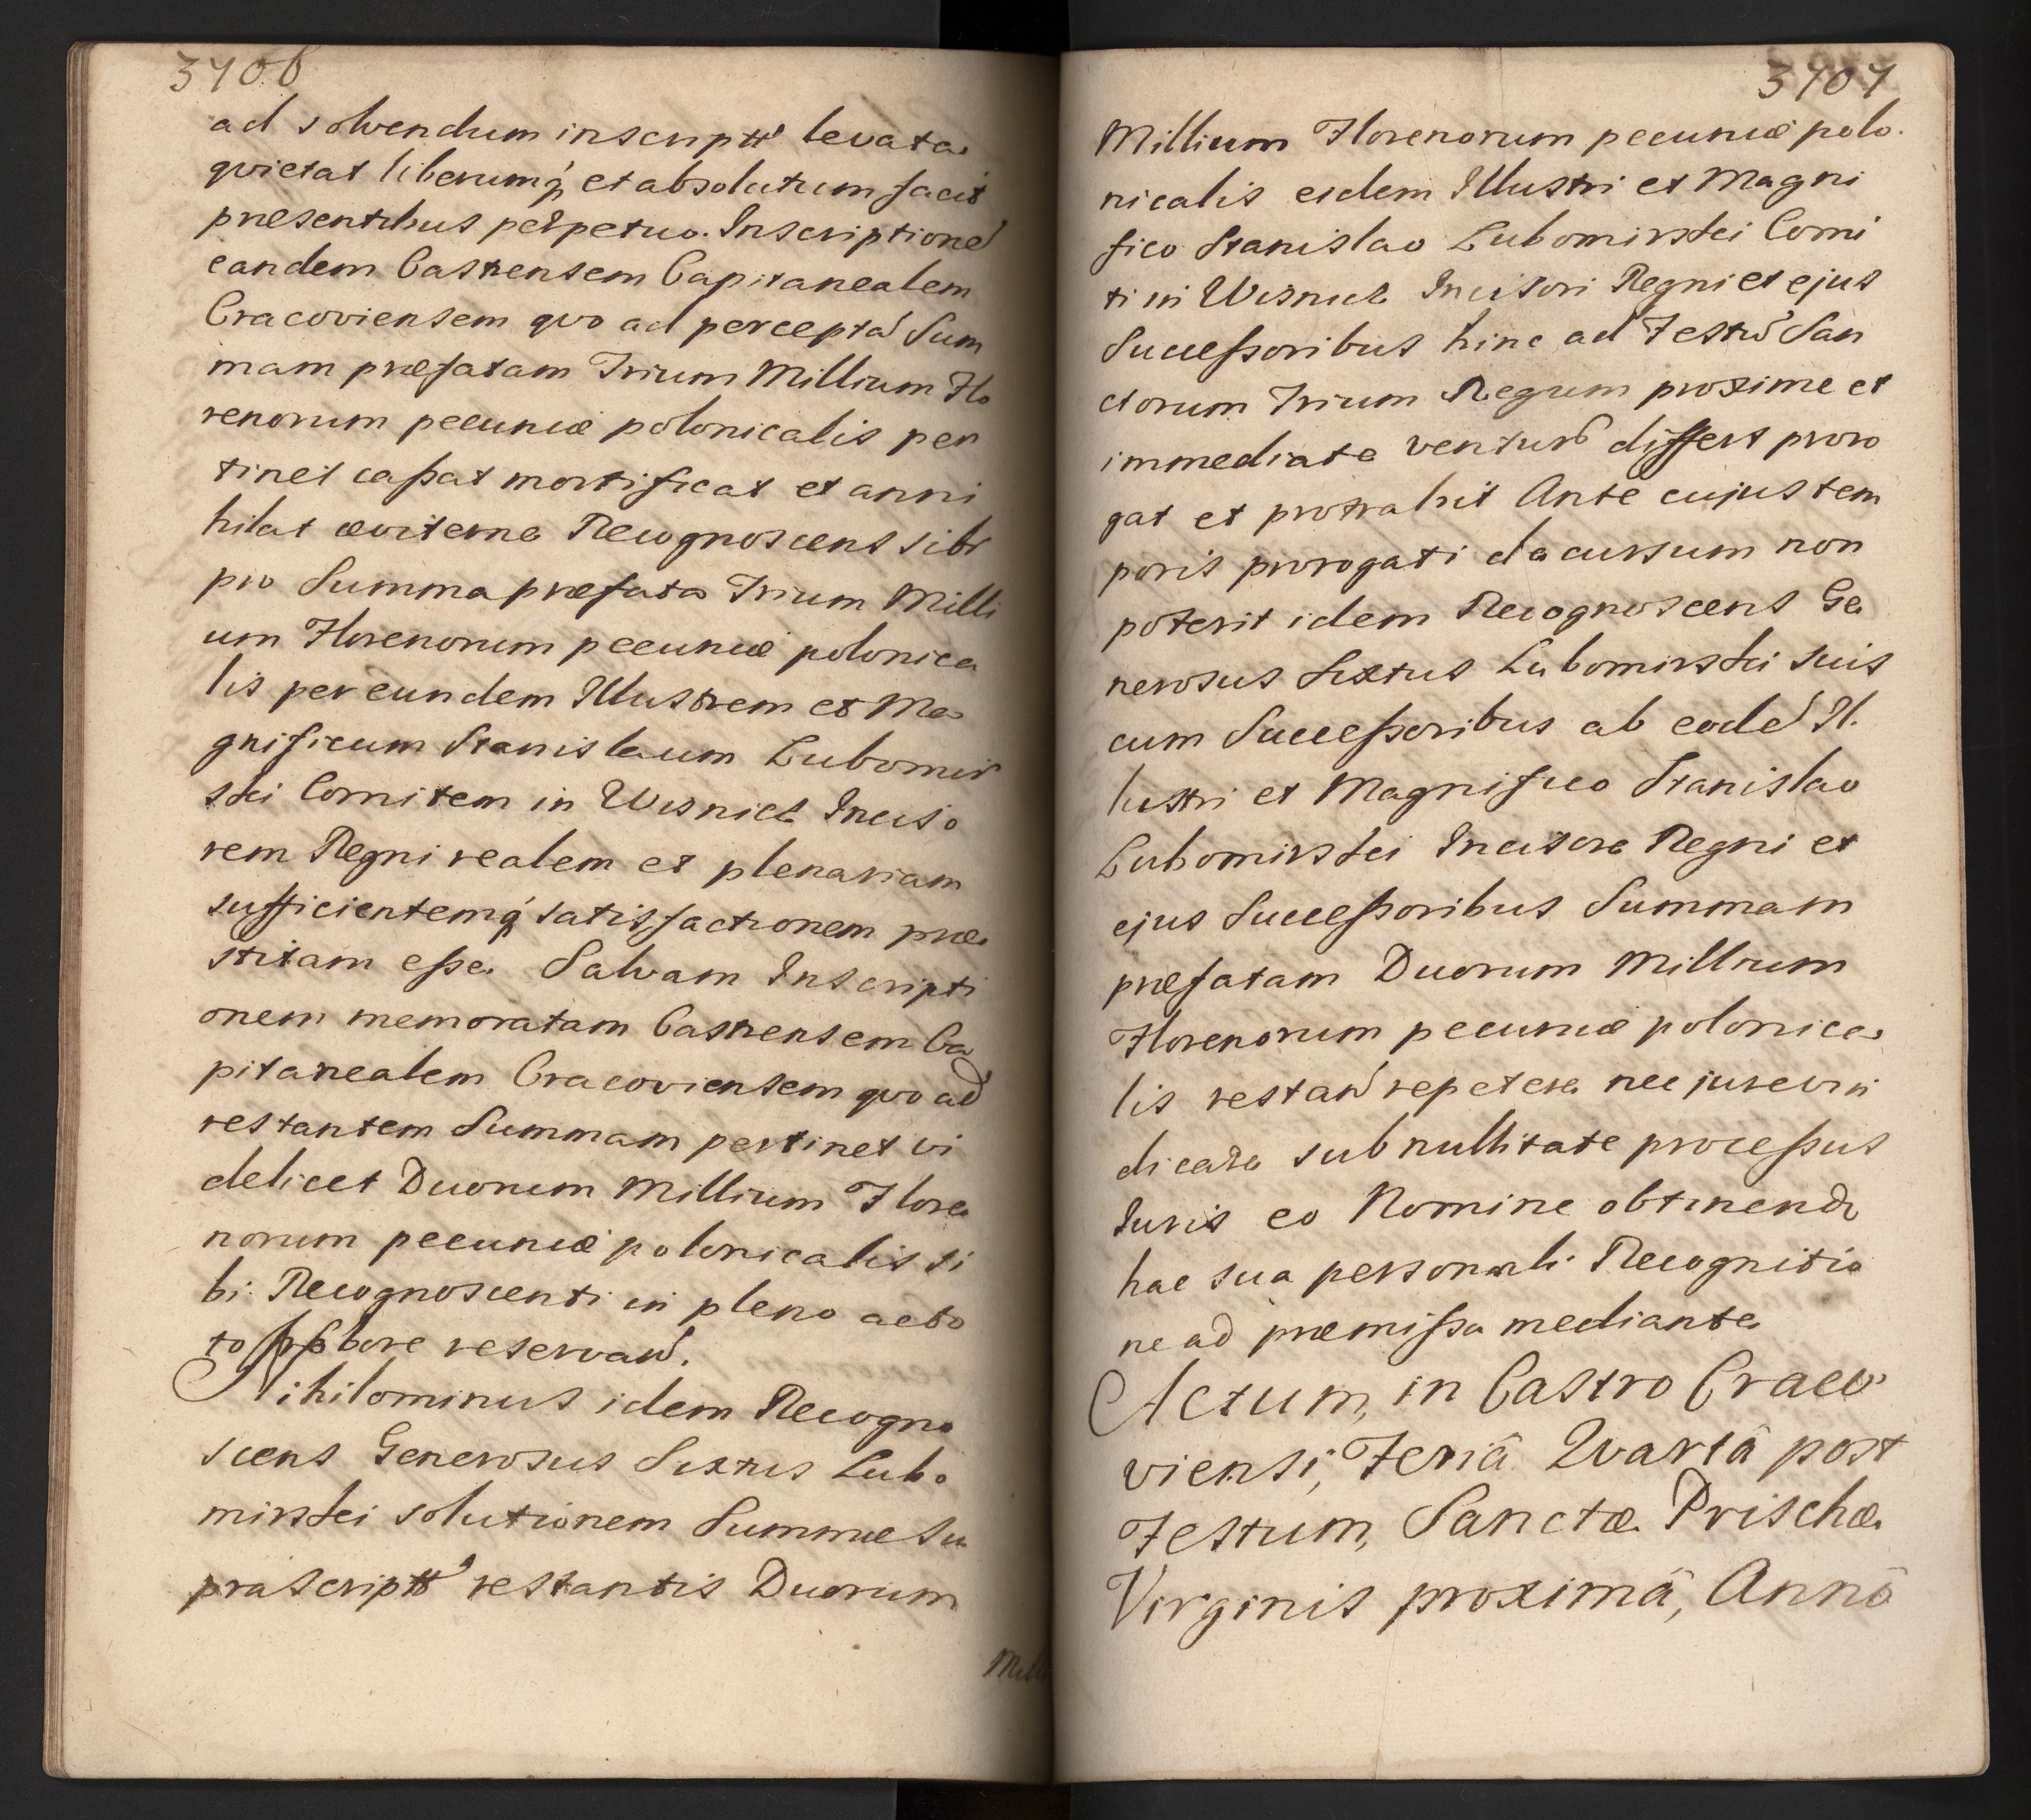 3706
ad solvendum inscriptt levata
quietat liberumq₃ et absolutum facit
præsentibus perpetuo. Inscriptione
eandem Castrensem Capitanealem
Cracoviensem quo ad percepta Sum
mam præfatam Trium Millium Flo
renorum pecuniæ polonicalis per
tinet caſsat mortificat et anni
hilat æviterne Recognoscens sibi
pro Summa præfata Trium Milli
um Florenorum pecuniæ polonica
lis per eundem Illustrem et Ma
gnificum Stanislaum Lubomir
ski Comitem in Wisnicz Inciso
rem Regni realem et plenariam
sufficientemq₃ satisfactionem præ
stitam eſse. Salvam Inscripti
onem memoratam Castrensem Ca
pitanealem Cracoviensem quo ad
restantem Summam pertinet vi
delicet Duorum Millium Flore
norum pecuniæ polonicalis si
bi Recognoscenti in pleno acto
to robore reservan.
Nihilominus idem Recogno
scens Generosus Sixtus Lubo
mirski solutionem Summæ su
prascriptt restantis Duorum
Mill
3707
Millium Florenorum pecuniæ polo
nicalis eidem Illustri et Magni
fico Stanislao Lubomirski Comi
ti in Wisnicz Incisori Regni et ejus
Succeſsoribus hinc ad Festu San
ctorum Trium Regum proxime et
immediate ventur differt proro
gat et protrahit Ante cujus tem
poris prorogati dacursum non
poterit idem Recognoscens Ge
nerosus Sixtus Lubomirski suis
cum Succeſsoribus ab eode Il
lustri et Magnifico Stanislao
Lubomirski Incisore Regni et
ejus Succeſsoribus Summam
præfatam Duorum Millium
Florenorum pecuniæ polonica
lis restan repetere nec jure vin
dicare sub nullitate proceſsus
Juris eo Nomine obtinendi
hac sua personali Recognitio
ne ad præmiſsa mediante
Actum, in Castro Craco
viensi, Feriâ Quartâ post
Festum, Sanctæ Prischæ
Virginis proximâ, Annô